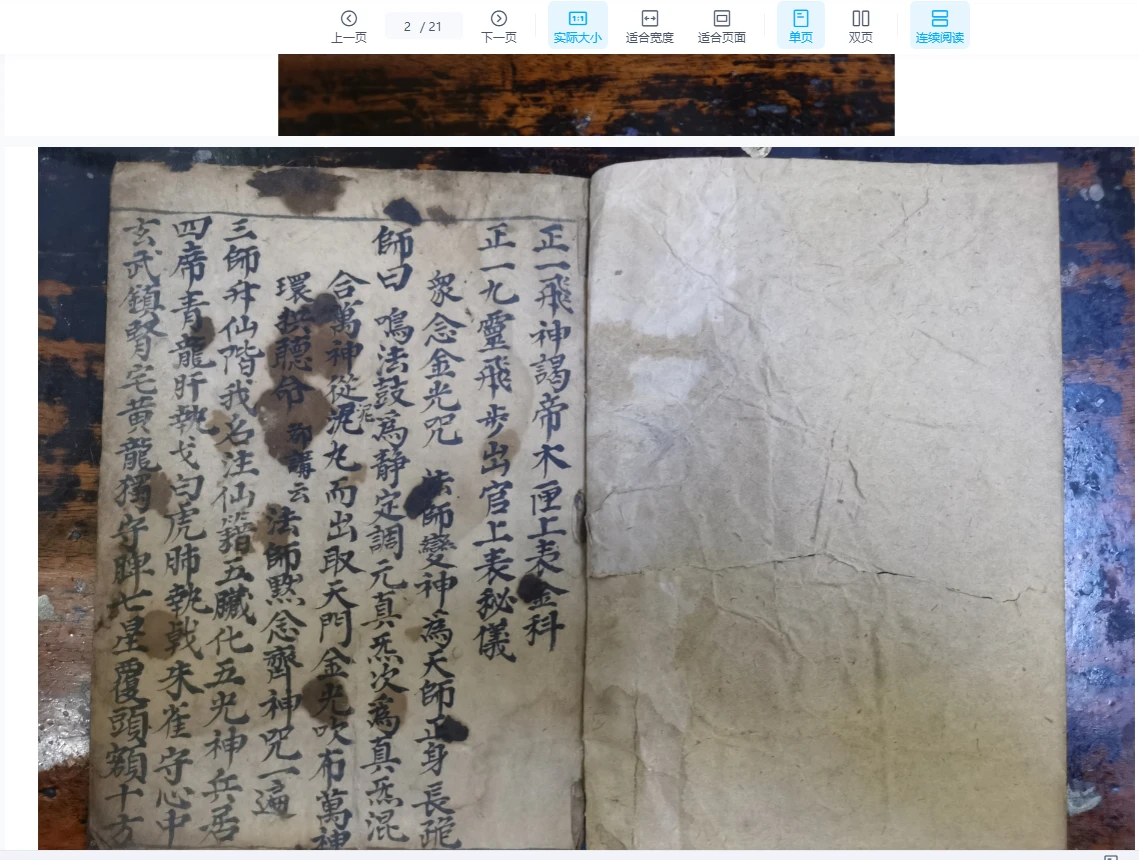 上一页
2 / 21
下一页
实际大小
适合宽度
适合页面
单页
双页
连续阅读
正一飛神謁帝木匣上表金科
正一九靈飛步出官上表秘儀
衆念金光咒 法師變神為天師正身長跪
師曰 鳴法鼓爲靜定調元真炁次爲真炁混
合萬神從泥丸而出取天門金光吹布萬神
泥
環拱聽命 都講云 法師默念齊神咒一遍
三師升仙階我名注仙籍五臟化五光神兵居
四席青龍肝執戈白虎肺執戟朱雀守心中
玄武鎮腎宅黄龍獨守脾七星覆頭額十方